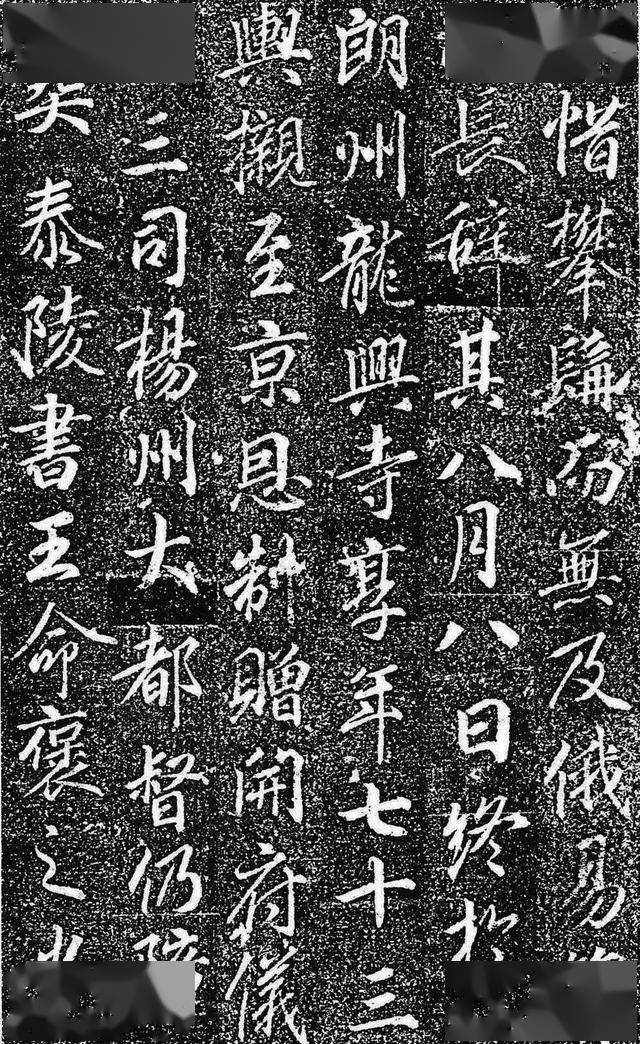 惜攀髯而無及俄易
長辭其八月八日終於
朗州龍興寺享年七十三
輿櫬至京恩制贈開府儀
三司楊州大都督仍陪
泰陵書王命褒之